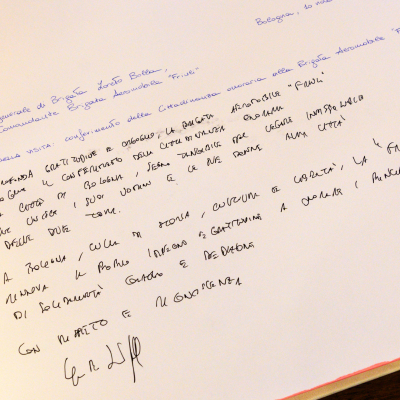 Bologna, 10
Generale di Brigata
Comandante Brigata Aeromobile "Friuli"
della visita: conferimento della Cittadinanza onoraria alla Brigata Aeromobile "F
gratitudine e orgoglio, la Brigata Aeromobile "Friuli"
il conferimento della cittadinanza onoraria
città di Bologna, segno tangibile del legame
che unisce i suoi uomini e le sue donne alla città
delle due torri.
A Bologna, culla di storia, cultura e libertà, la "F
rinnova il proprio impegno e gratitudine a onorare i
di solidarietà, coraggio e dedizione
con rispetto e riconoscenza